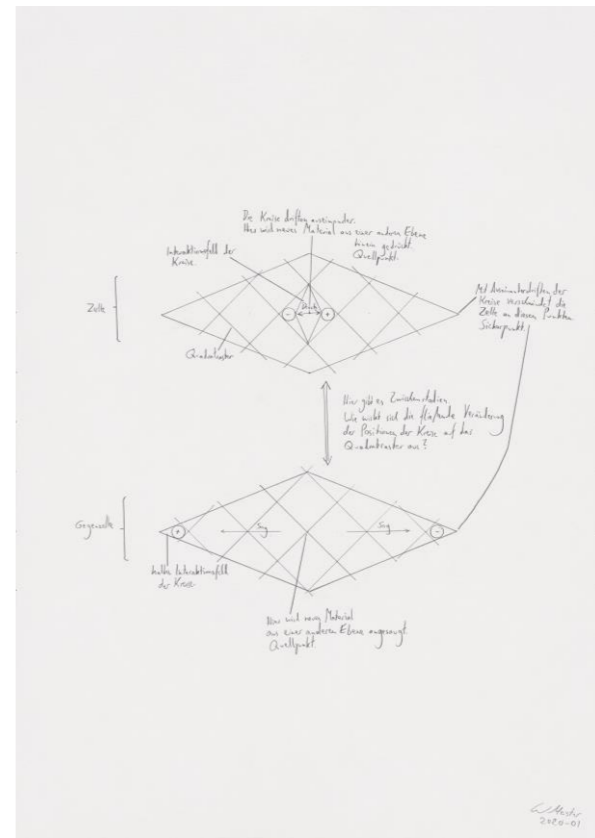 Die Kreise driften auseinander.
Hier wird neues Material aus einer anderen Ebene
hinein gedrückt.
Quellpunkt.
Interaktionsfeld der
Kreise.
Zelle
Druck
- +
Quadratraster
Mit Auseinanderdriften der
Kreise verschwindet die
Zelle an diesen Punkten
Sickerpunkt.
Hier gibt es Zwischenstadien.
Wie wirkt sich die fließende Veränderung
der Positionen der Kreise auf das
Quadratraster aus?
Gegenzelle
+ Sog Sog -
Interaktionsfeld
der Kreise
Hier wird neues Material
aus einer anderen Ebene angesaugt.
Quellpunkt.
2020-01